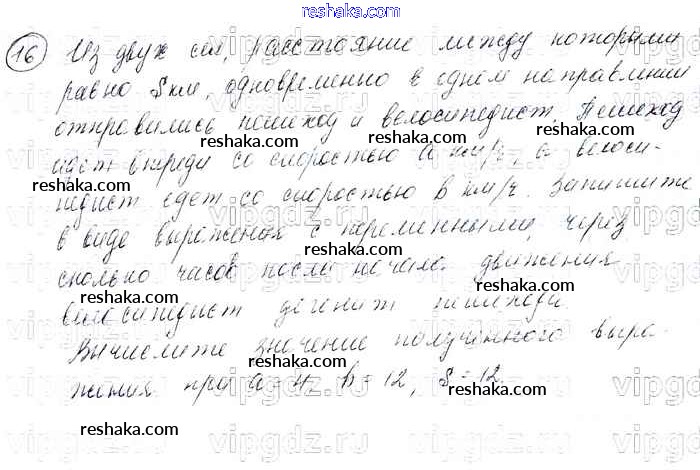 reshaka.com
16 Из двух сел, расстояние между которыми
равно S км, одновременно в одном направлении
отправились пешеход и велосипедист. Пешеход
reshaka.com
идет впереди со скоростью a км/ч, а велоси-
reshaka.com
педист едет со скоростью в км/ч. Запишите
reshaka.com
в виде выражения с переменными, через
reshaka.com
сколько часов после начала движения
reshaka.com
велосипедист догонит пешехода.
reshaka.com
Вычислите значение полученного выра-
reshaka.com
жения при a = 4, b = 12, S = 12.
reshaka.com
reshaka.com
vipgdz.ru